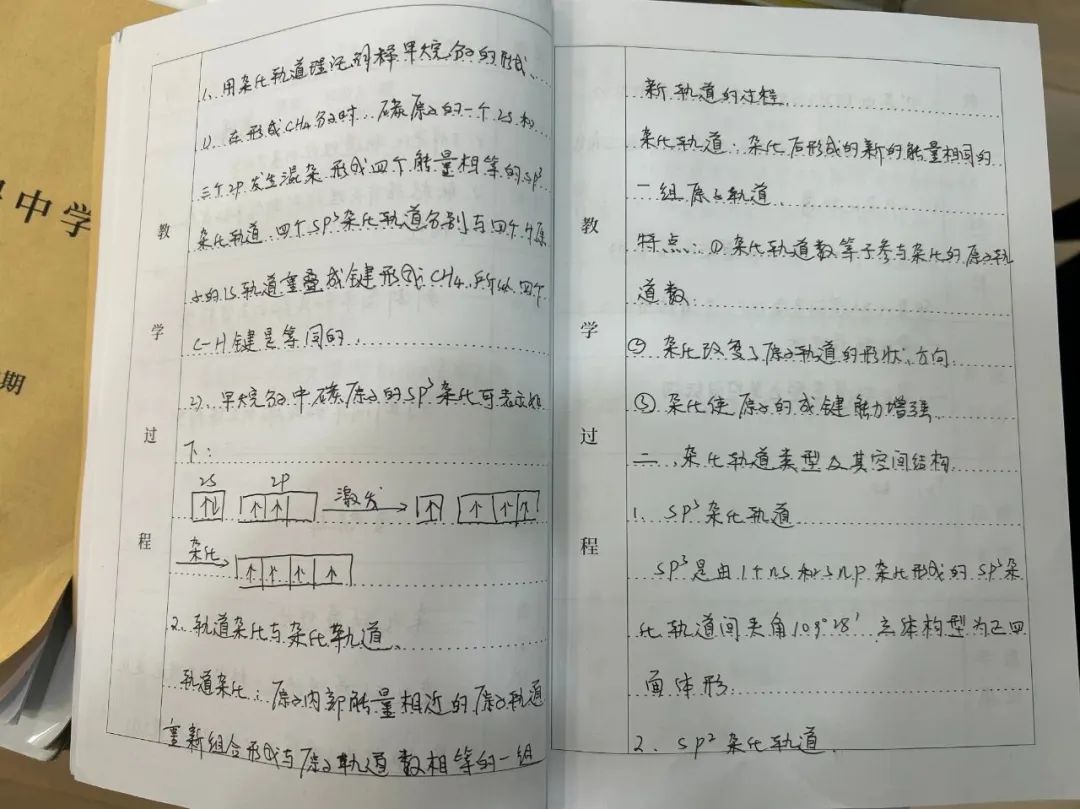 中学
期
教
学
过
程
1、用杂化轨道理论解释甲烷分子的形成、
1)、在形成CH4分子时、碳原子的一个2s和
三个2p发生混杂形成四个能量相等的sp³
杂化轨道、四个sp³杂化轨道分别与四个H原
子的1s轨道重叠成键形成CH4,所以四个
C-H键是等同的.
2)、甲烷分子中碳原子的sp³杂化可表示如
下:
2s 2p
↑↓ ↑ ↑ 激发 ↑ ↑ ↑ ↑
杂化 ↑ ↑ ↑ ↑
2、轨道杂化与杂化轨道、
轨道杂化:原子内部能量相近的原子轨道
重新组合形成与原子轨道数相等的一组
教
学
过
程
新轨道的过程
杂化轨道:杂化后形成的新的能量相同的
一组原子轨道.
特点:①杂化轨道数等于参与杂化的原子轨
道数
②杂化改变了原子轨道的形状、方向
③杂化使原子的成键能力增强
二、杂化轨道类型及其空间结构
1. sp³杂化轨道
sp³是由1个ns和3np杂化形成的sp³杂
化轨道间夹角109°28′ 立体构型为正四
面体形
2、sp²杂化轨道.